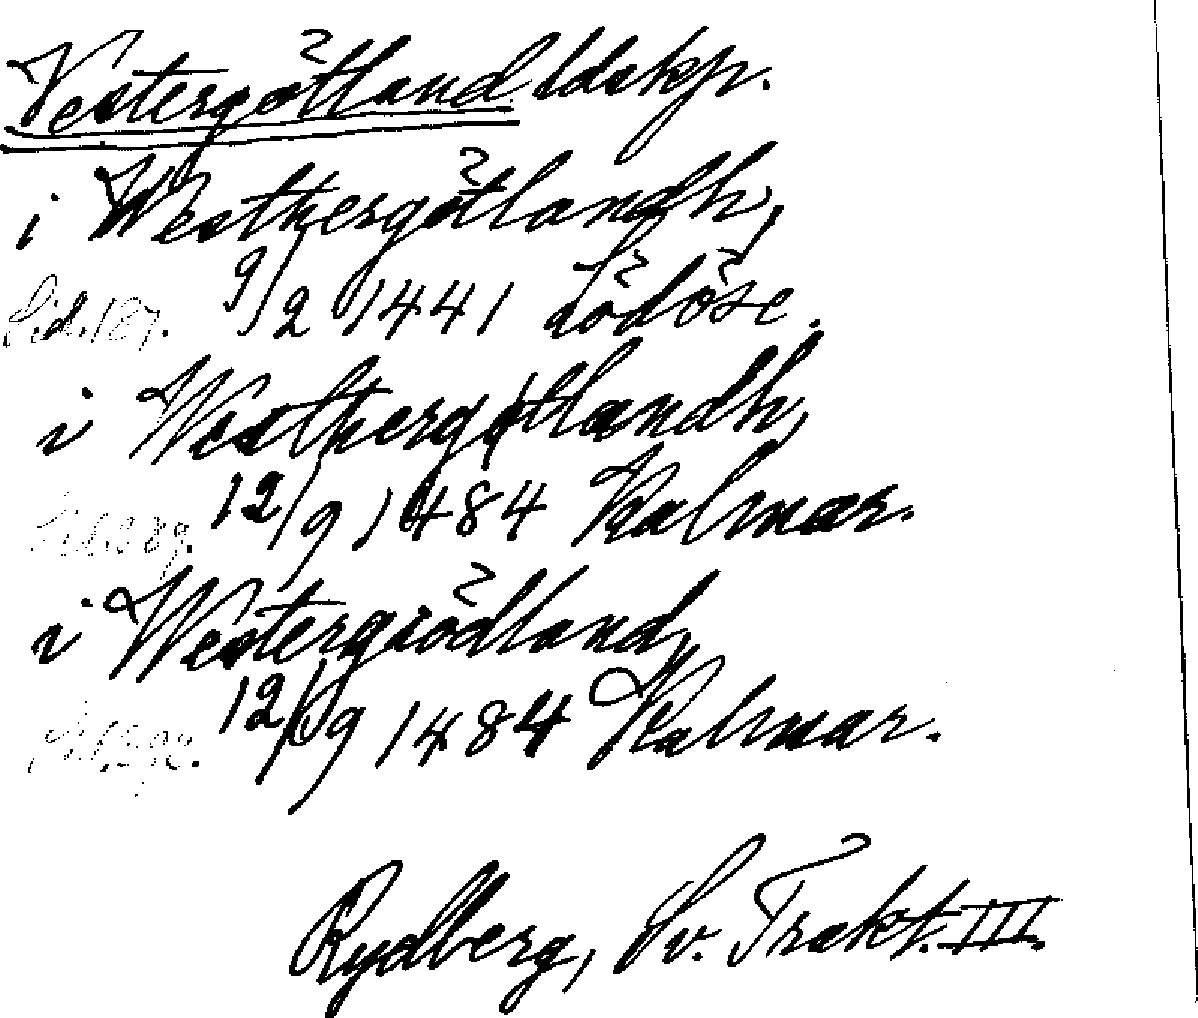 Vestergötland ldskp.
i Westhergötlandh,
Sid. 187. 9/2 1441 Lödöse.
i Westhergötlandh,
12/9 1484 Kalmar.
i Westergiödland,
12/9 1484 Kalmar.
Rydberg, Sv. Trakt. III.